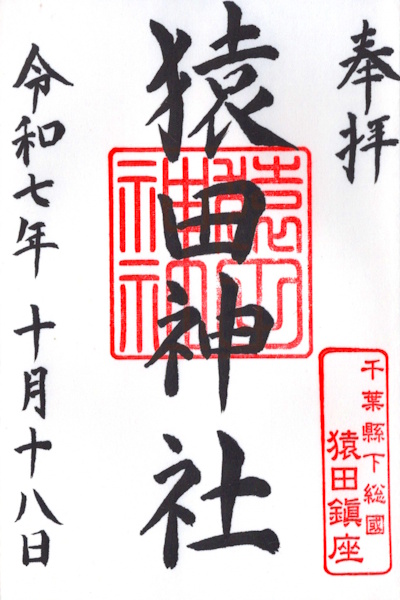 奉拝
千葉縣下総國
猿田鎮座
猿田神社
猿田神社
令和七年 十月十八日